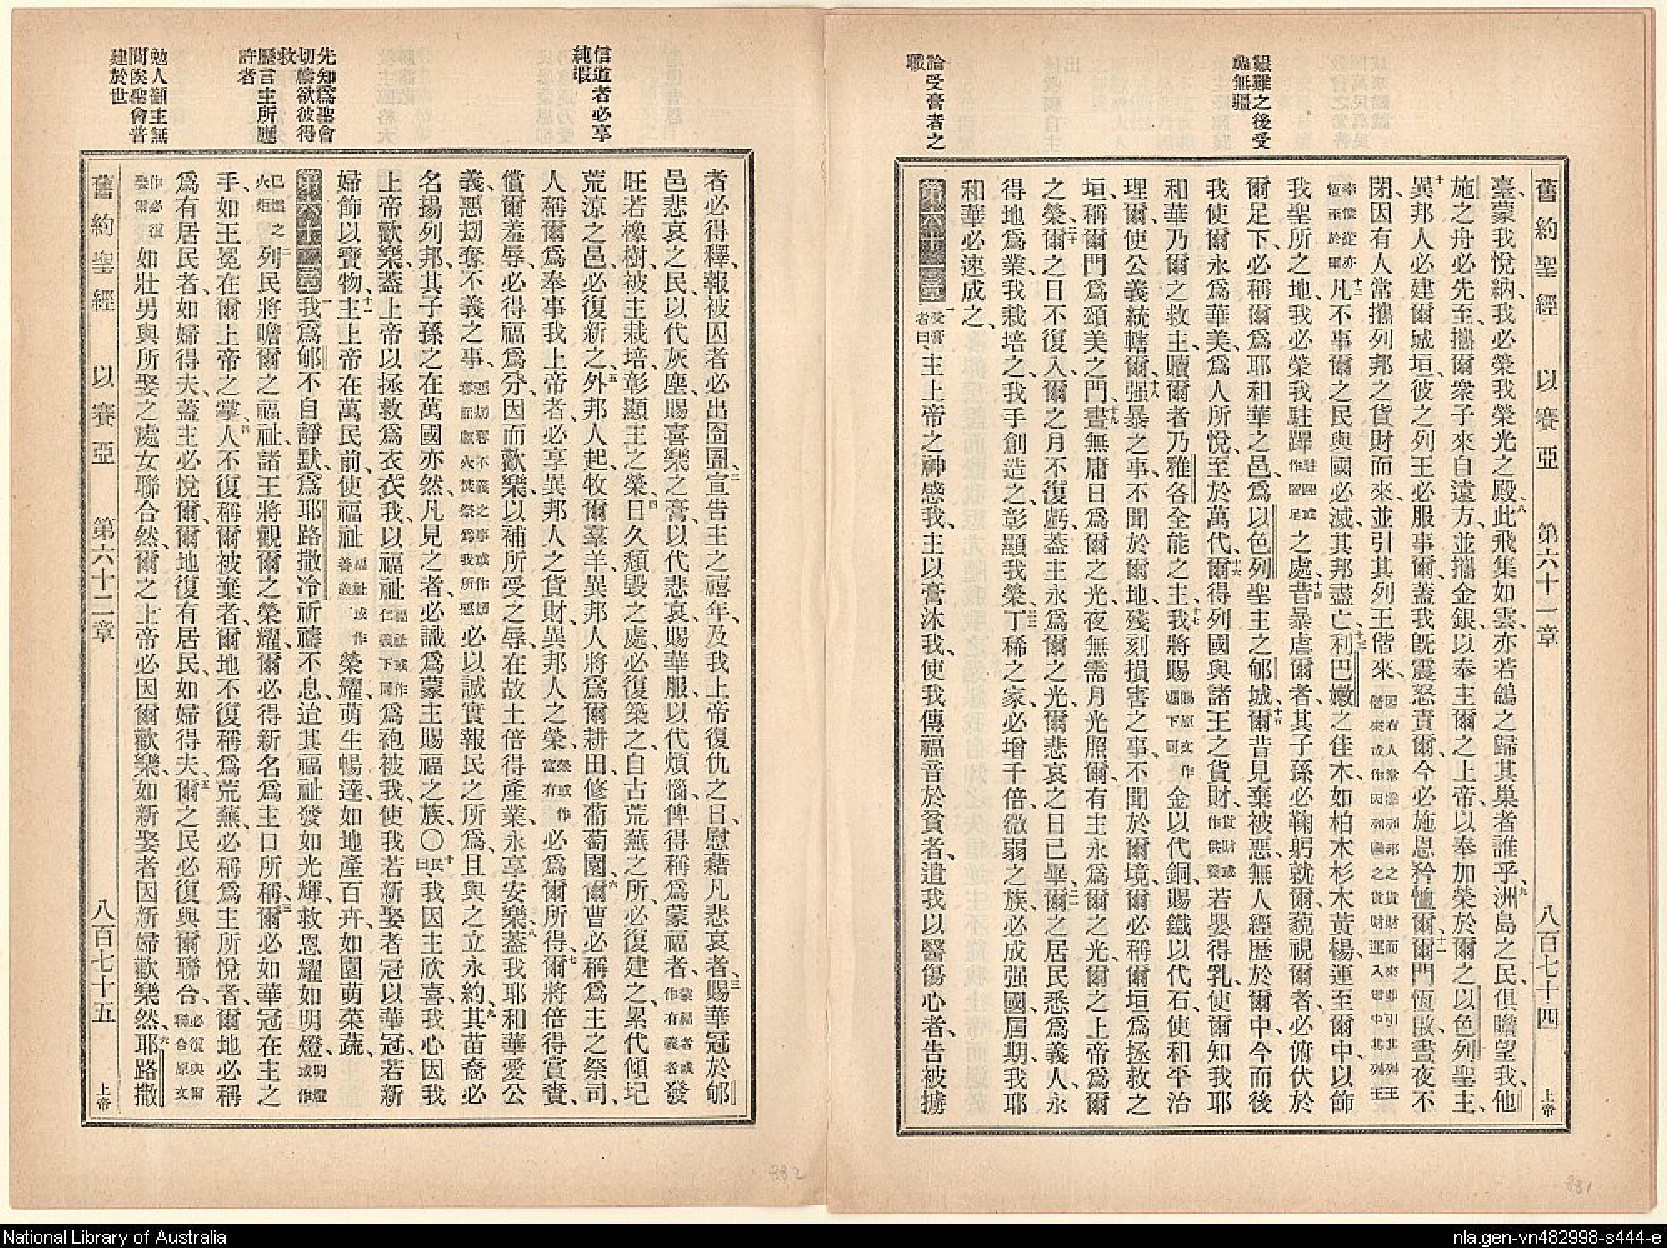 艱難之後受
論受膏者之
職
舊約聖經 以賽亞 第六十一章 八百七十四 上帝
臺蒙我悅納我必榮我榮光之殿八此飛集如雲亦若鴿之歸其巢者誰乎九洲島之民俱瞻望我他
施之舟必先至攜爾衆子來自遠方並攜金銀以奉主爾之上帝以奉加榮於爾之以色列聖主
十異邦人必建爾城垣彼之列王必服事爾蓋我旣震怒責爾今必施恩矜恤爾十一爾門恆啟晝夜不
閉因有人常攜列邦之貨財而來並引其列王偕來
十二凡不事爾之民與國必滅其邦盡亡十三利巴嫩之佳木如柏木杉木黃楊運至爾中以飾
我聖所之地我必榮我駐蹕之處十四昔暴虐爾者其子孫必鞠躬就爾藐視爾者必俯伏於
爾足下必稱爾爲耶和華之邑爲以色列聖主之郇城十五爾昔見棄被惡無人經歷於爾中今而後
我使爾永爲華美爲人所悅至於萬代十六爾得列國與諸王之貨財若嬰得乳使爾知我耶
和華乃爾之救主贖爾者乃雅各全能之主十七我將賜金以代銅賜鐵以代石使和平治
理爾使公義統轄爾十八强暴之事不聞於爾地殘刻損害之事不聞於爾境爾必稱爾垣爲拯救之
垣稱爾門爲頌美之門十九晝無庸日爲爾之光夜無需月光照爾有主永爲爾之光爾之上帝爲爾
之榮二十爾之日不復入爾之月不復虧蓋主永爲爾之光爾悲哀之日已畢二一爾之居民悉爲義人永
得地爲業我栽培之我手創造之彰顯我榮二二丁稀之家必增千倍微弱之族必成强國屆期我耶
和華必速成之
第六十一章 一受膏者曰主上帝之神感我主以膏沐我使我傳福音於貧者遣我以醫傷心者告被擄
信道者必享
純嘏
先知爲聖會
切禱欲彼得
救
歷言主所應
許者
勉人籲主無
間俟聖會普
建於世
者必得釋報被囚者必出囹圄二宣告主之禧年及我上帝復仇之日慰藉凡悲哀者三賜華冠於郇
邑悲哀之民以代灰塵賜喜樂之膏以代悲哀賜華服以代煩惱俾得稱爲蒙福者蒙福者或作有義者發
旺若橡樹被主栽培彰顯主之榮四日久頹毀之處必復築之自古荒蕪之所必復建之累代傾圮
荒涼之邑必復新之五外邦人起牧爾羣羊異邦人將爲爾耕田修葡萄園六爾曹必稱爲主之祭司
人稱爾爲奉事我上帝者必享異邦人之貨財異邦人之榮必爲爾所得七爾將倍得賞賚
償爾羞辱必得福爲分因而歡樂以補所受之辱在故土倍得產業永享安樂八蓋我耶和華愛公
義惡刦奪不義之事必以誠實報民之所爲且與之立永約九其苗裔必
名揚列邦其子孫之在萬國亦然凡見之者必識爲蒙主賜福之族〇十民曰我因主欣喜我心因我
上帝歡樂蓋上帝以拯救爲衣衣我以福祉爲袍被我使我若新娶者冠以華冠若新
婦飾以寶物十一主上帝在萬民前使福祉榮耀萌生暢達如地產百卉如園萌菜蔬
第六十二章 一我爲郇不自靜默爲耶路撒冷祈禱不息迨其福祉發如光輝救恩耀如明燈明燈或作
已燃之火炬二列民將瞻爾之福祉諸王將觀爾之榮耀爾必得新名爲主口所稱三爾必如華冠在主之
手如王冕在爾上帝之掌四人不復稱爾被棄者爾地不復稱爲荒蕪必稱爲主所悅者爾地必稱
爲有居民者如婦得夫蓋主必悅爾爾地復有居民如婦得夫五爾之民必復與爾聯合必復與爾聯合原文
作必娶爾如壯男與所娶之處女聯合然爾之上帝必因爾歡樂如新娶者因新婦歡樂然六耶路撒
舊約聖經 以賽亞 第六十二章 八百七十五 上帝
882
881
National Library of Australia
nla.gen-vn482998-s444-e